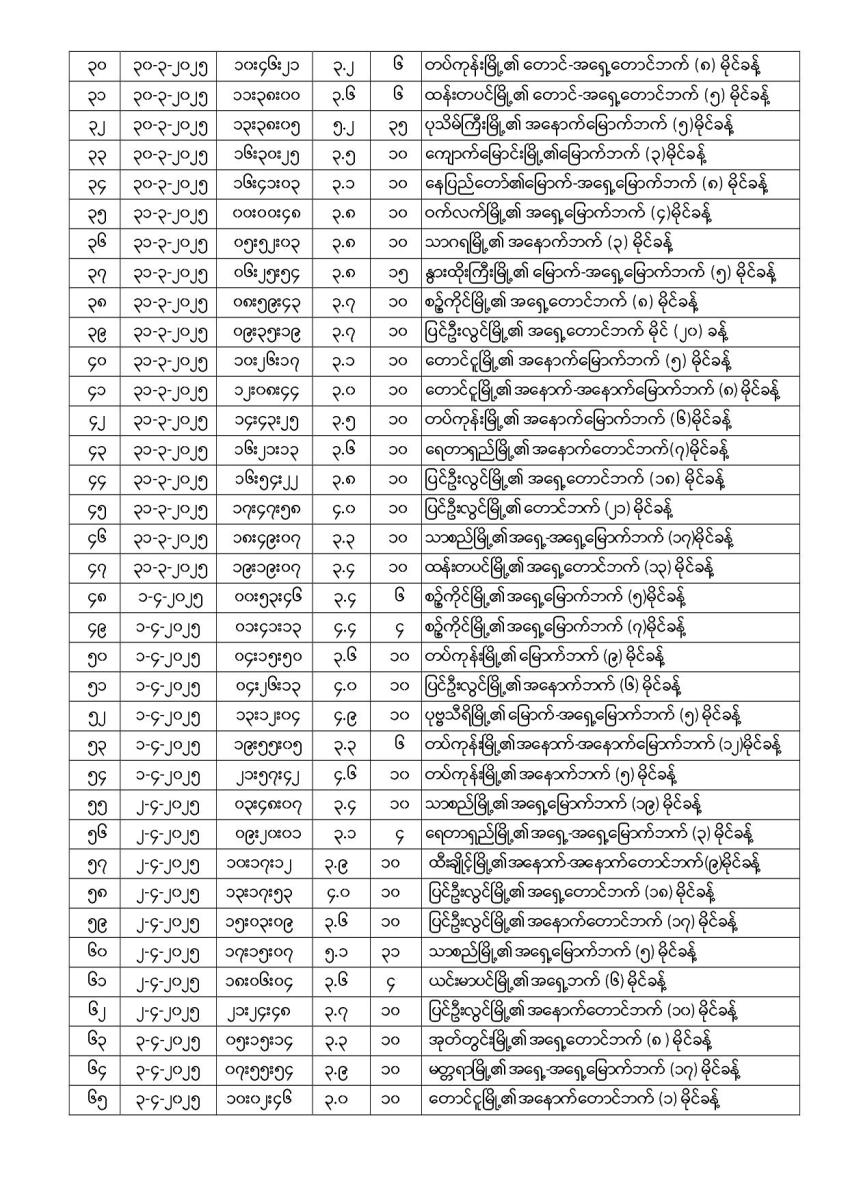 ၃၀ ၃၀-၃-၂၀၂၅ ၁၀း၄၆း၂၁ ၃.၂ ၆ တပ်ကုန်းမြို့၏ တောင်-အရှေ့တောင်ဘက် (၈) မိုင်ခန့်
၃၁ ၃၀-၃-၂၀၂၅ ၁၁း၃၈း၀၀ ၃.၆ ၆ ထန်းတပင်မြို့၏ တောင်-အရှေ့တောင်ဘက် (၅) မိုင်ခန့်
၃၂ ၃၀-၃-၂၀၂၅ ၁၃း၃၈း၀၅ ၅.၂ ၃၅ ပုသိမ်ကြီးမြို့၏ အနောက်မြောက်ဘက် (၅)မိုင်ခန့်
၃၃ ၃၀-၃-၂၀၂၅ ၁၆း၃၀း၂၅ ၃.၅ ၁၀ ကျောက်မြောင်းမြို့၏မြောက်ဘက် (၃)မိုင်ခန့်
၃၄ ၃၀-၃-၂၀၂၅ ၁၆း၄၁း၀၃ ၃.၁ ၁၀ နေပြည်တော်၏မြောက်-အရှေ့မြောက်ဘက် (၈) မိုင်ခန့်
၃၅ ၃၁-၃-၂၀၂၅ ၀၀း၀၀း၄၈ ၃.၈ ၁၀ ဝက်လက်မြို့၏ အရှေ့မြောက်ဘက် (၄)မိုင်ခန့်
၃၆ ၃၁-၃-၂၀၂၅ ၀၅း၅၂း၀၃ ၃.၈ ၁၀ သာဂရမြို့၏ အနောက်ဘက် (၃) မိုင်ခန့်
၃၇ ၃၁-၃-၂၀၂၅ ၀၆း၂၅း၅၄ ၃.၈ ၁၅ နွားထိုးကြီးမြို့၏ မြောက်-အရှေ့မြောက်ဘက် (၅) မိုင်ခန့်
၃၈ ၃၁-၃-၂၀၂၅ ၀၈း၅၉း၄၃ ၃.၇ ၁၀ စဉ့်ကိုင်မြို့၏ အရှေ့တောင်ဘက် (၈) မိုင်ခန့်
၃၉ ၃၁-၃-၂၀၂၅ ၀၉း၃၅း၁၉ ၃.၇ ၁၀ ပြင်ဦးလွင်မြို့၏ အရှေ့တောင်ဘက် မိုင် (၂၀) ခန့်
၄၀ ၃၁-၃-၂၀၂၅ ၁၀း၂၆း၁၇ ၃.၁ ၁၀ တောင်ငူမြို့၏ အနောက်မြောက်ဘက် (၅) မိုင်ခန့်
၄၁ ၃၁-၃-၂၀၂၅ ၁၂း၀၈း၄၄ ၃.၀ ၁၀ တောင်ငူမြို့၏အနောက်-အနောက်မြောက်ဘက် (၈) မိုင်ခန့်
၄၂ ၃၁-၃-၂၀၂၅ ၁၄း၄၃း၂၅ ၃.၅ ၁၀ တပ်ကုန်းမြို့၏ အနောက်မြောက်ဘက် (၆)မိုင်ခန့်
၄၃ ၃၁-၃-၂၀၂၅ ၁၆း၂၁း၁၃ ၃.၆ ၁၀ ရေတာရှည်မြို့၏ အနောက်တောင်ဘက်(၇)မိုင်ခန့်
၄၄ ၃၁-၃-၂၀၂၅ ၁၆း၅၄း၂၂ ၃.၈ ၁၀ ပြင်ဦးလွင်မြို့၏ အရှေ့တောင်ဘက် (၁၈) မိုင်ခန့်
၄၅ ၃၁-၃-၂၀၂၅ ၁၇း၄၇း၅၈ ၄.၀ ၁၀ ပြင်ဦးလွင်မြို့၏ တောင်ဘက် (၂၁) မိုင်ခန့်
၄၆ ၃၁-၃-၂၀၂၅ ၁၈း၄၉း၀၇ ၃.၃ ၁၀ သာစည်မြို့၏ အရှေ့-အရှေ့မြောက်ဘက် (၁၇)မိုင်ခန့်
၄၇ ၃၁-၃-၂၀၂၅ ၁၉း၁၉း၀၇ ၃.၄ ၁၀ ထန်းတပင်မြို့၏ အရှေ့တောင်ဘက် (၁၃) မိုင်ခန့်
၄၈ ၁-၄-၂၀၂၅ ၀၀း၅၃း၄၆ ၃.၄ ၆ စဉ့်ကိုင်မြို့၏ အရှေ့မြောက်ဘက် (၅)မိုင်ခန့်
၄၉ ၁-၄-၂၀၂၅ ၀၁း၄၁း၁၃ ၄.၄ ၄ စဉ့်ကိုင်မြို့၏ အရှေ့မြောက်ဘက် (၇)မိုင်ခန့်
၅၀ ၁-၄-၂၀၂၅ ၀၄း၁၅း၅၀ ၃.၆ ၁၀ တပ်ကုန်းမြို့၏ မြောက်ဘက် (၉) မိုင်ခန့်
၅၁ ၁-၄-၂၀၂၅ ၀၄း၂၆း၁၃ ၄.၀ ၁၀ ပြင်ဦးလွင်မြို့၏ အနောက်ဘက် (၆) မိုင်ခန့်
၅၂ ၁-၄-၂၀၂၅ ၁၃း၁၂း၀၄ ၄.၉ ၁၀ ပုဗ္ဗသီရိမြို့၏ မြောက်-အရှေ့မြောက်ဘက် (၅) မိုင်ခန့်
၅၃ ၁-၄-၂၀၂၅ ၁၉း၅၅း၀၅ ၃.၃ ၆ တပ်ကုန်းမြို့၏အနောက်-အနောက်မြောက်ဘက် (၁၂)မိုင်ခန့်
၅၄ ၁-၄-၂၀၂၅ ၂၁း၅၇း၄၂ ၄.၆ ၁၀ တပ်ကုန်းမြို့၏ အနောက်ဘက် (၅) မိုင်ခန့်
၅၅ ၂-၄-၂၀၂၅ ၀၃း၄၈း၀၇ ၃.၄ ၁၀ သာစည်မြို့၏ အရှေ့မြောက်ဘက် (၁၉) မိုင်ခန့်
၅၆ ၂-၄-၂၀၂၅ ၀၉း၂၀း၀၁ ၃.၁ ၄ ရေတာရှည်မြို့၏ အရှေ့-အရှေ့မြောက်ဘက် (၃) မိုင်ခန့်
၅၇ ၂-၄-၂၀၂၅ ၁၀း၁၇း၁၂ ၃.၉ ၁၀ ထီးချိုင့်မြို့၏ အနောက်-အနောက်တောင်ဘက်(၉)မိုင်ခန့်
၅၈ ၂-၄-၂၀၂၅ ၁၃း၁၇း၅၃ ၄.၀ ၁၀ ပြင်ဦးလွင်မြို့၏ အရှေ့တောင်ဘက် (၁၈) မိုင်ခန့်
၅၉ ၂-၄-၂၀၂၅ ၁၅း၀၃း၀၉ ၃.၆ ၁၀ ပြင်ဦးလွင်မြို့၏ အနောက်တောင်ဘက် (၁၇) မိုင်ခန့်
၆၀ ၂-၄-၂၀၂၅ ၁၇း၁၅း၀၇ ၅.၁ ၃၁ သာစည်မြို့၏ အရှေ့မြောက်ဘက် (၅) မိုင်ခန့်
၆၁ ၂-၄-၂၀၂၅ ၁၈း၀၆း၀၄ ၃.၆ ၄ ယင်းမာပင်မြို့၏ အရှေ့ဘက် (၆) မိုင်ခန့်
၆၂ ၂-၄-၂၀၂၅ ၂၁း၂၄း၄၈ ၃.၇ ၁၀ ပြင်ဦးလွင်မြို့၏ အနောက်တောင်ဘက် (၁၀) မိုင်ခန့်
၆၃ ၃-၄-၂၀၂၅ ၀၅း၁၅း၁၄ ၃.၃ ၁၀ အုတ်တွင်းမြို့၏ အရှေ့တောင်ဘက် (၈ ) မိုင်ခန့်
၆၄ ၃-၄-၂၀၂၅ ၀၇း၅၅း၅၄ ၃.၉ ၁၀ မတ္တရာမြို့၏ အရှေ့-အရှေ့မြောက်ဘက် (၁၇) မိုင်ခန့်
၆၅ ၃-၄-၂၀၂၅ ၁၀း၀၂း၄၆ ၃.၀ ၁၀ တောင်ငူမြို့၏ အနောက်တောင်ဘက် (၁) မိုင်ခန့်